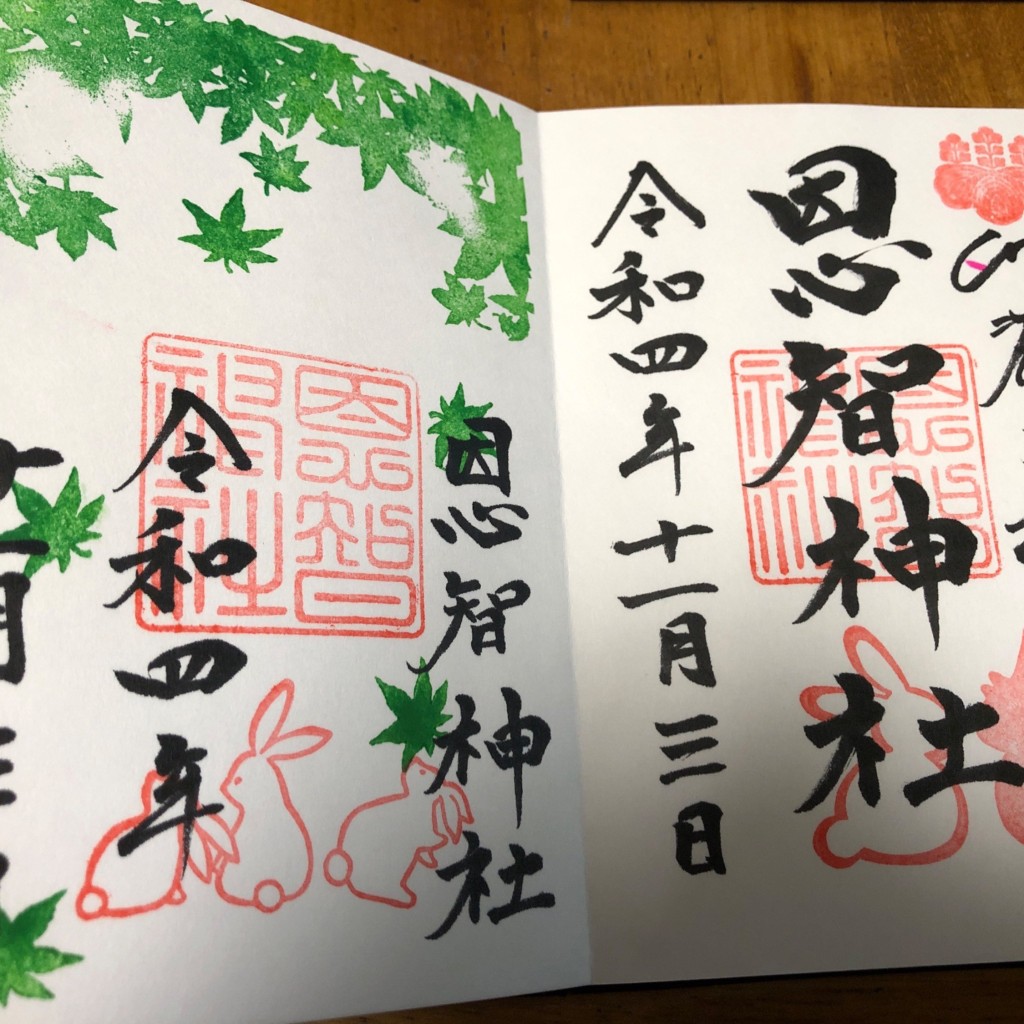 恩智神社
令和四年十一月三日
恩智神社
恩智神社
令和四年
恩智神社